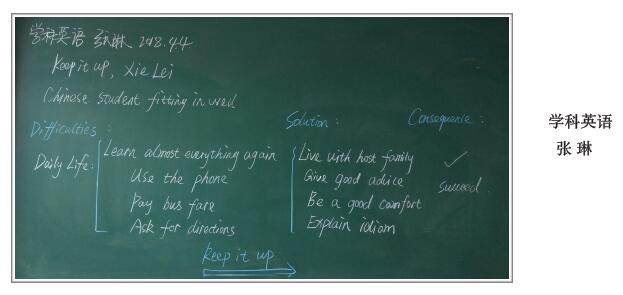 学科英语 张琳 2018.4.4
Keep it up, Xie Lei
Chinese student fitting in well
Difficulties :
Solution :
Consequence :
Daily Life :
Learn almost everything again
Use the phone
Pay bus fare
Ask for directions
Live with host family
Give good advice
Be a good comfort
Explain idiom
✓
succeed.
keep it up
学科英语
张 琳